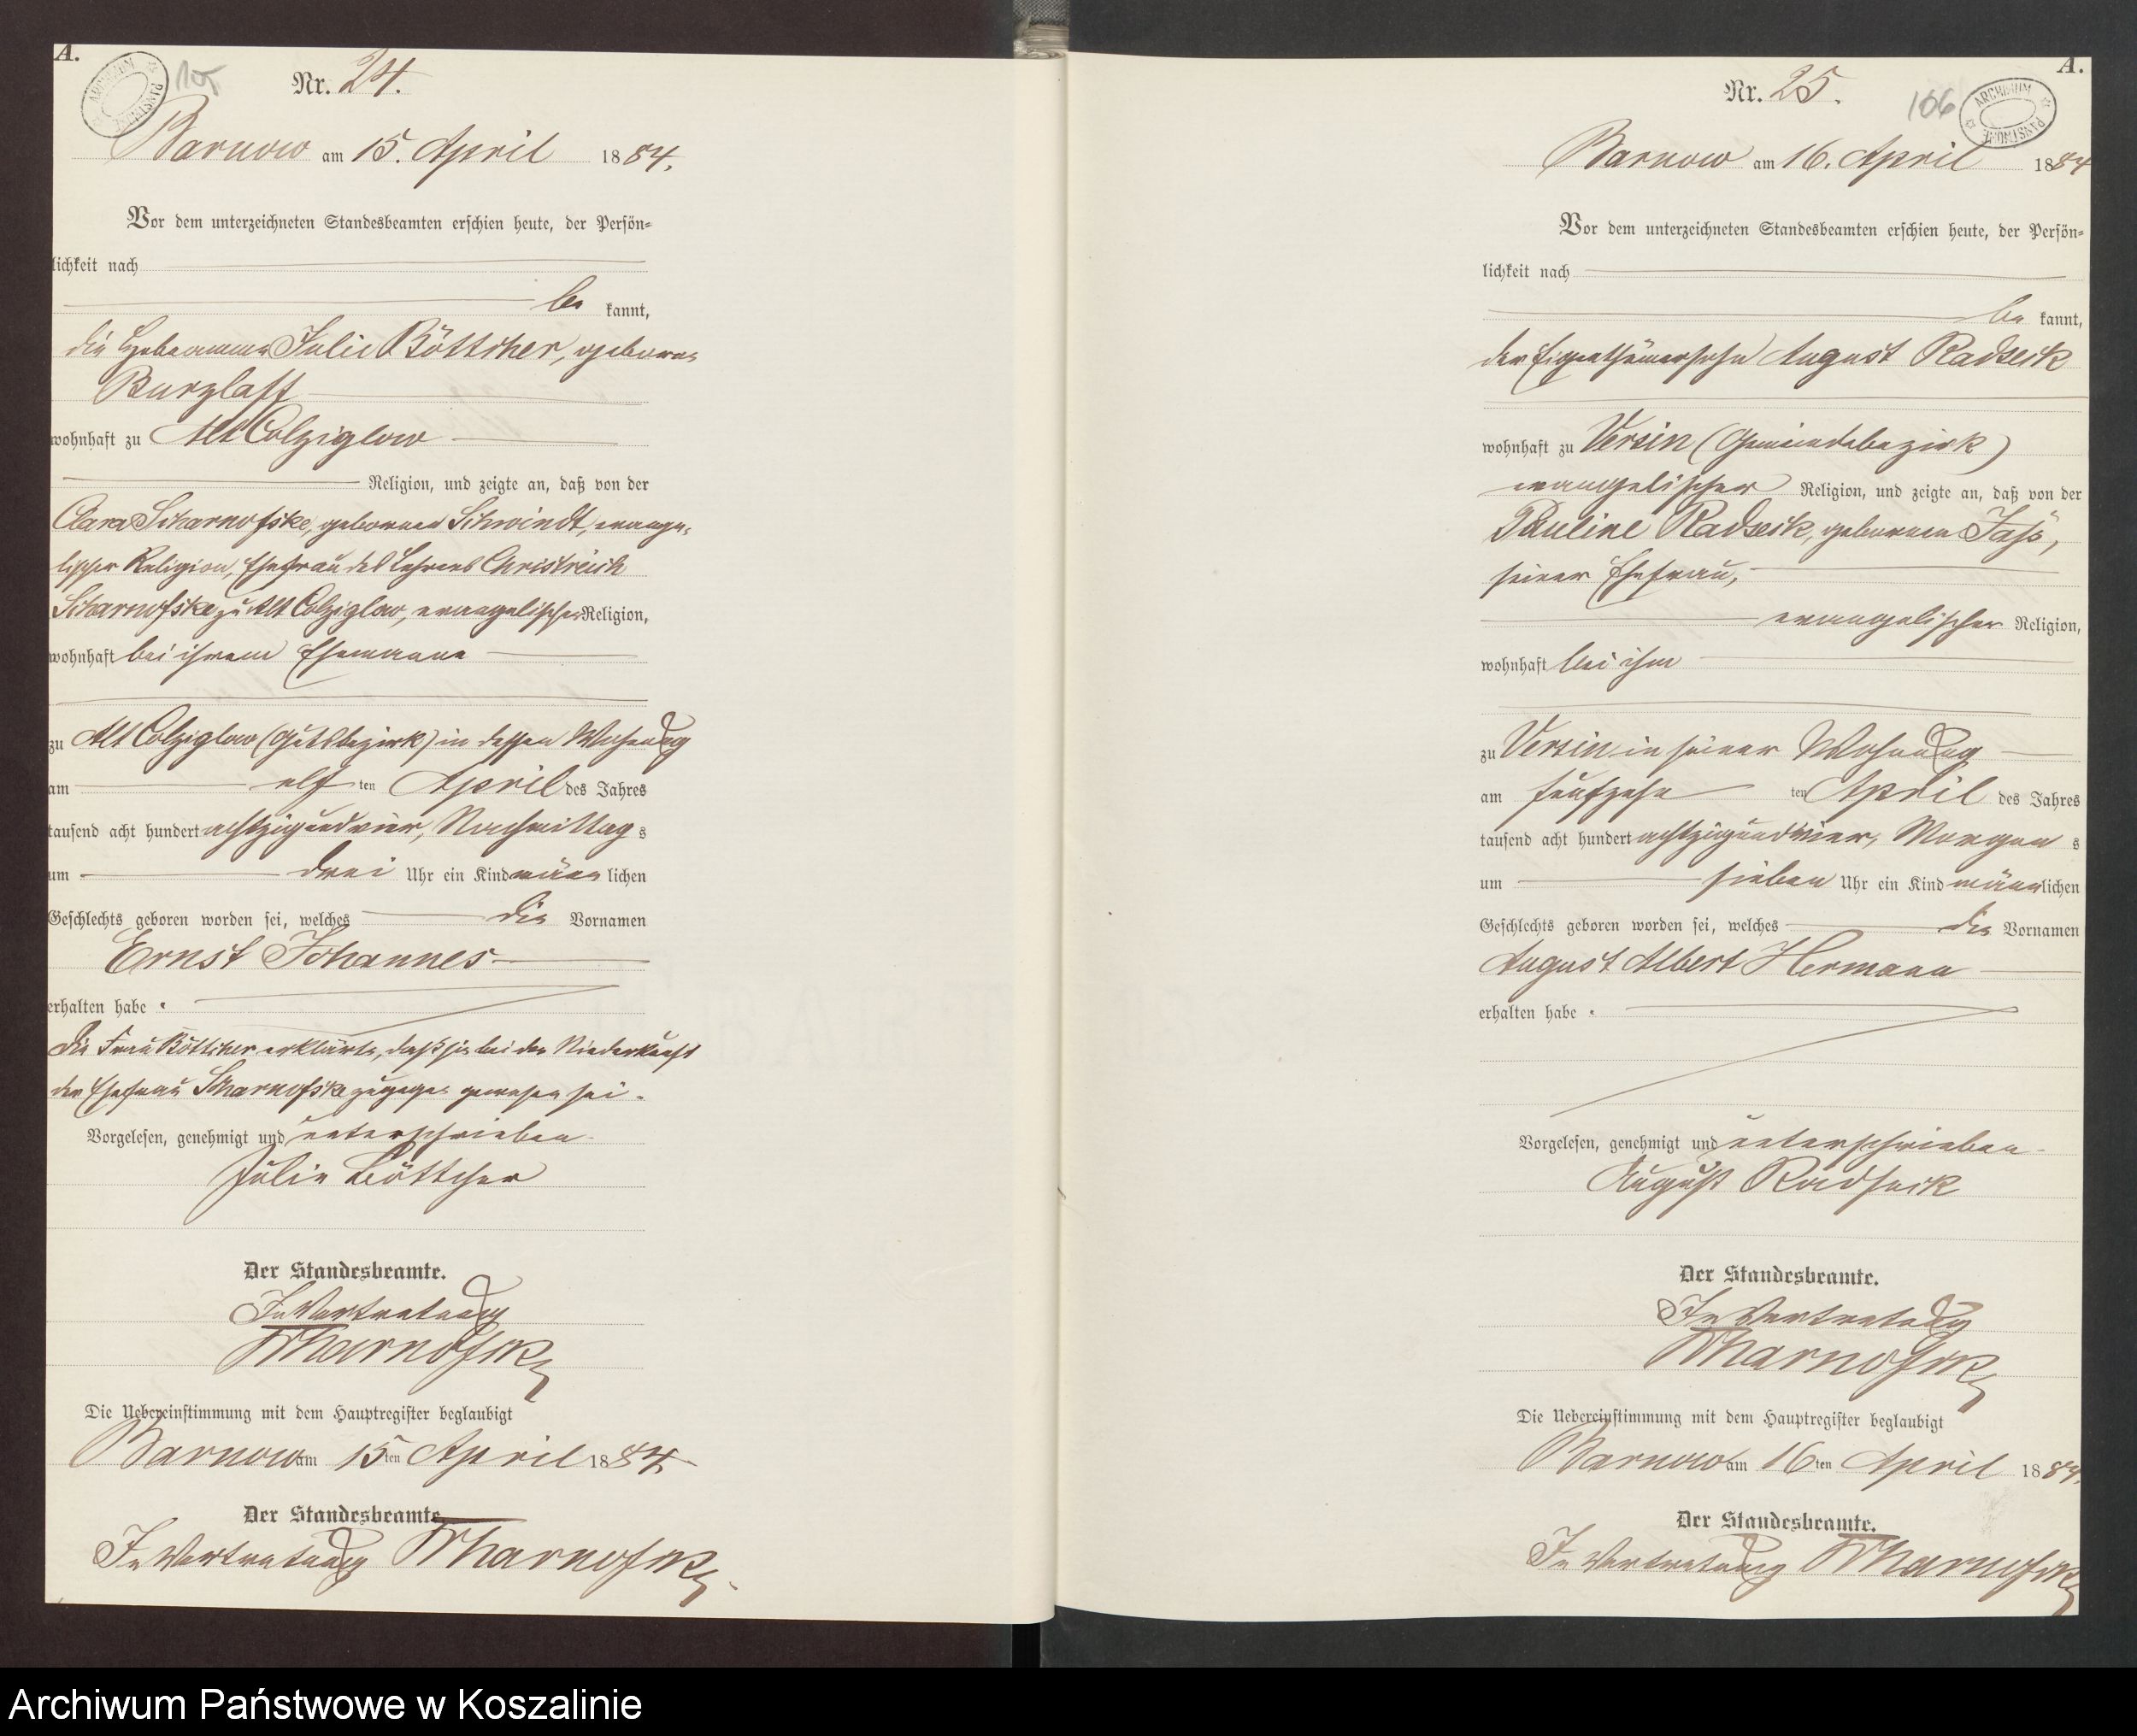 A.
ARCHIWUM PAŃSTWOWE
105
Nr. 24.
Barnow am 15. April 1884.
Vor dem unterzeichneten Standesbeamten erschien heute, der Persön-
lichkeit nach
be kannt,
die Hebeamme Julie Böttcher, geborne
Burzlaff
wohnhaft zu Alt Colziglow
Religion, und zeigte an, daß von der
Clara Scharnofske, gebornen Schwindt, evange-
lischer Religion, Ehefrau des Lehrers Christreich
Scharnofske zu Alt Colziglow, evangelischer Religion,
wohnhaft bei ihrem Ehemanne
zu Alt Colziglow (Gutsbezirk) in dessen Wohnung
am elf ten April des Jahres
tausend acht hundert achtzig und vier, Nachmittag s
um drei Uhr ein Kind männ lichen
Geschlechts geboren worden sei, welches die Vornamen
Ernst Johannes
erhalten habe.
Die Frau Böttcher erklärte, daß sie bei der Niederkunft
der Ehefrau Scharnofske zugegen gewesen sei.
Vorgelesen, genehmigt und unterschrieben.
Julie Böttcher
Der Standesbeamte.
In Vertretung
Scharnofske
Die Uebereinstimmung mit dem Hauptregister beglaubigt
Barnow am 15 ten April 1884.
Der Standesbeamte.
In Vertretung Scharnofske.
A.
ARCHIWUM PAŃSTWOWE
106
Nr. 25.
Barnow am 16. April 1884
Vor dem unterzeichneten Standesbeamten erschien heute, der Persön-
lichkeit nach
be kannt,
der Eigenthümersohn August Radseck
wohnhaft zu Versin (Gemeindebezirk)
evangelischer Religion, und zeigte an, daß von der
Pauline Radseck, gebornen Jaß,
seiner Ehefrau,
evangelischer Religion,
wohnhaft bei ihm
zu Versin in seiner Wohnung
am fünfzehn ten April des Jahres
tausend acht hundert achtzig und vier, Morgen s
um sieben Uhr ein Kind männ lichen
Geschlechts geboren worden sei, welches die Vornamen
August Albert Hermann
erhalten habe.
Vorgelesen, genehmigt und unterschrieben.
August Radseck
Der Standesbeamte.
In Vertretung
Scharnofske
Die Uebereinstimmung mit dem Hauptregister beglaubigt
Barnow am 16 ten April 1884.
Der Standesbeamte.
In Vertretung Scharnofske
Archiwum Państwowe w Koszalinie